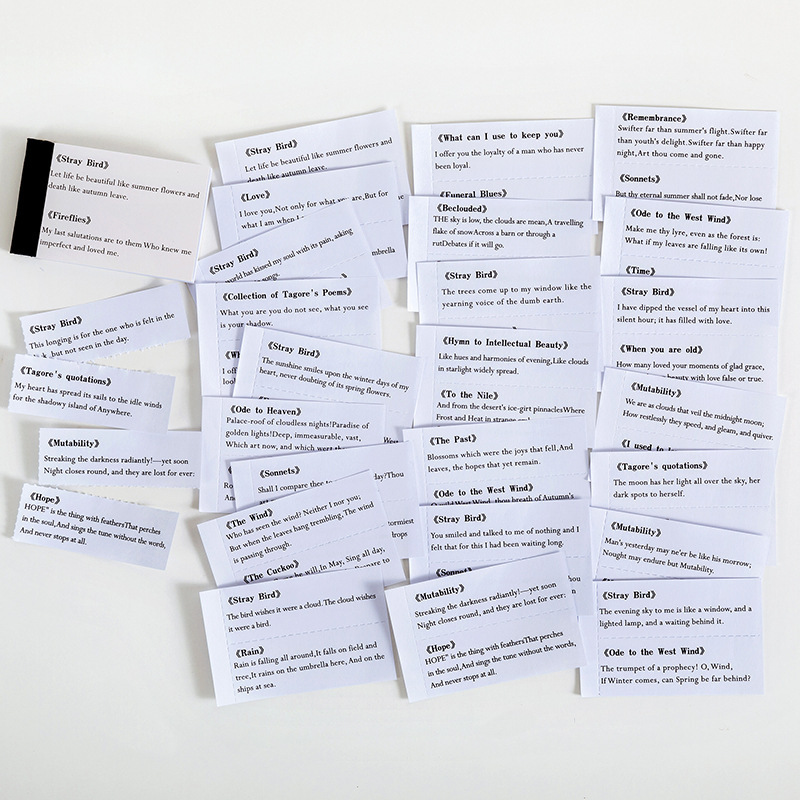 《Stray Bird》
Let life be beautiful like summer flowers and
death like autumn leave.
《Fireflies》
My last salutations are to them Who knew me
imperfect and loved me.
《Stray Bird》
This longing is for the one who is felt in the
but not seen in the day.
《Tagore's quotations》
My heart has spread its sails to the idle winds
for the shadowy island of Anywhere.
《Mutability》
Streaking the darkness radiantly!—yet soon
Night closes round, and they are lost for ever:
《Hope》
HOPE" is the thing with feathersThat perches
in the soul,And sings the tune without the words,
And never stops at all.
《Stray Bird》
Let life be beautiful like summer flowers and
death like autumn leave.
《Love》
I love you,Not only for what you are,But for
what I am when I
《Stray Bird》
world has kissed my soul with its pain, asking
songs.
umbrella
《Collection of Tagore's Poems》
What you are you do not see, what you see
is your shadow.
I off
look
《Stray Bird》
The sunshine smiles upon the winter days of my
heart, never doubting of its spring flowers.
《Ode to Heaven》
Palace-roof of cloudless nights!Paradise of
golden lights!Deep, immeasurable, vast,
Which art now, and which wert
《Sonnets》
Shall I compare thee to day?Thou
《The Wind》
Who has seen the wind! Neither I nor you;
But when the leaves hang trembling,The wind
is passing through.
《The Cuckoo》
he will,In May, Sing all day,
Prepare to
《Stray Bird》
The bird wishes it were a cloud.The cloud wishes
it were a bird.
《Rain》
Rain is falling all around,It falls on field and
tree,It rains on the umbrella here, And on the
ships at sea.
《What can I use to keep you》
I offer you the loyalty of a man who has never
been loyal.
《Funeral Blues》
《Beclouded》
THE sky is low, the clouds are mean,A travelling
flake of snowAcross a barn or through a
rutDebates if it will go.
《Stray Bird》
The trees come up to my window like the
yearning voice of the dumb earth.
《Hymn to Intellectual Beauty》
Like hues and harmonies of evening,Like clouds
in starlight widely spread.
《To the Nile》
And from the desert's ice-girt pinnaclesWhere
Frost and Heat in strange
《The Past》
Blossoms which were the joys that fell,And
leaves, the hopes that yet remain.
《Ode to the West Wind》
wild West Wind, thou breath of Autumn's
《Stray Bird》
You smiled and talked to me of nothing and I
felt that for this I had been waiting long.
《Sonnets》
《Mutability》
Streaking the darkness radiantly!—yet soon
Night closes round, and they are lost for ever:
《Hope》
HOPE" is the thing with feathersThat perches
in the soul,And sings the tune without the words,
And never stops at all.
《Remembrance》
Swifter far than summer's flight.Swifter far
than youth's delight.Swifter far than happy
night,Art thou come and gone.
《Sonnets》
But thy eternal summer shall not fade,Nor lose
《Ode to the West Wind》
Make me thy lyre, even as the forest is:
What if my leaves are falling like its own!
《Time》
《Stray Bird》
I have dipped the vessel of my heart into this
silent hour; it has filled with love.
《When you are old》
How many loved your moments of glad grace,
beauty with love false or true.
《Mutability》
We are as clouds that veil the midnight moon;
How restlessly they speed, and gleam, and quiver
《I used to
《Tagore's quotations》
The moon has her light all over the sky, her
dark spots to herself.
《Mutability》
Man's yesterday may ne'er be like his morrow;
Nought may endure but Mutability.
《Stray Bird》
The evening sky to me is like a window, and a
lighted lamp, and a waiting behind it.
《Ode to the West Wind》
The trumpet of a prophecy! O, Wind,
If Winter comes, can Spring be far behind?